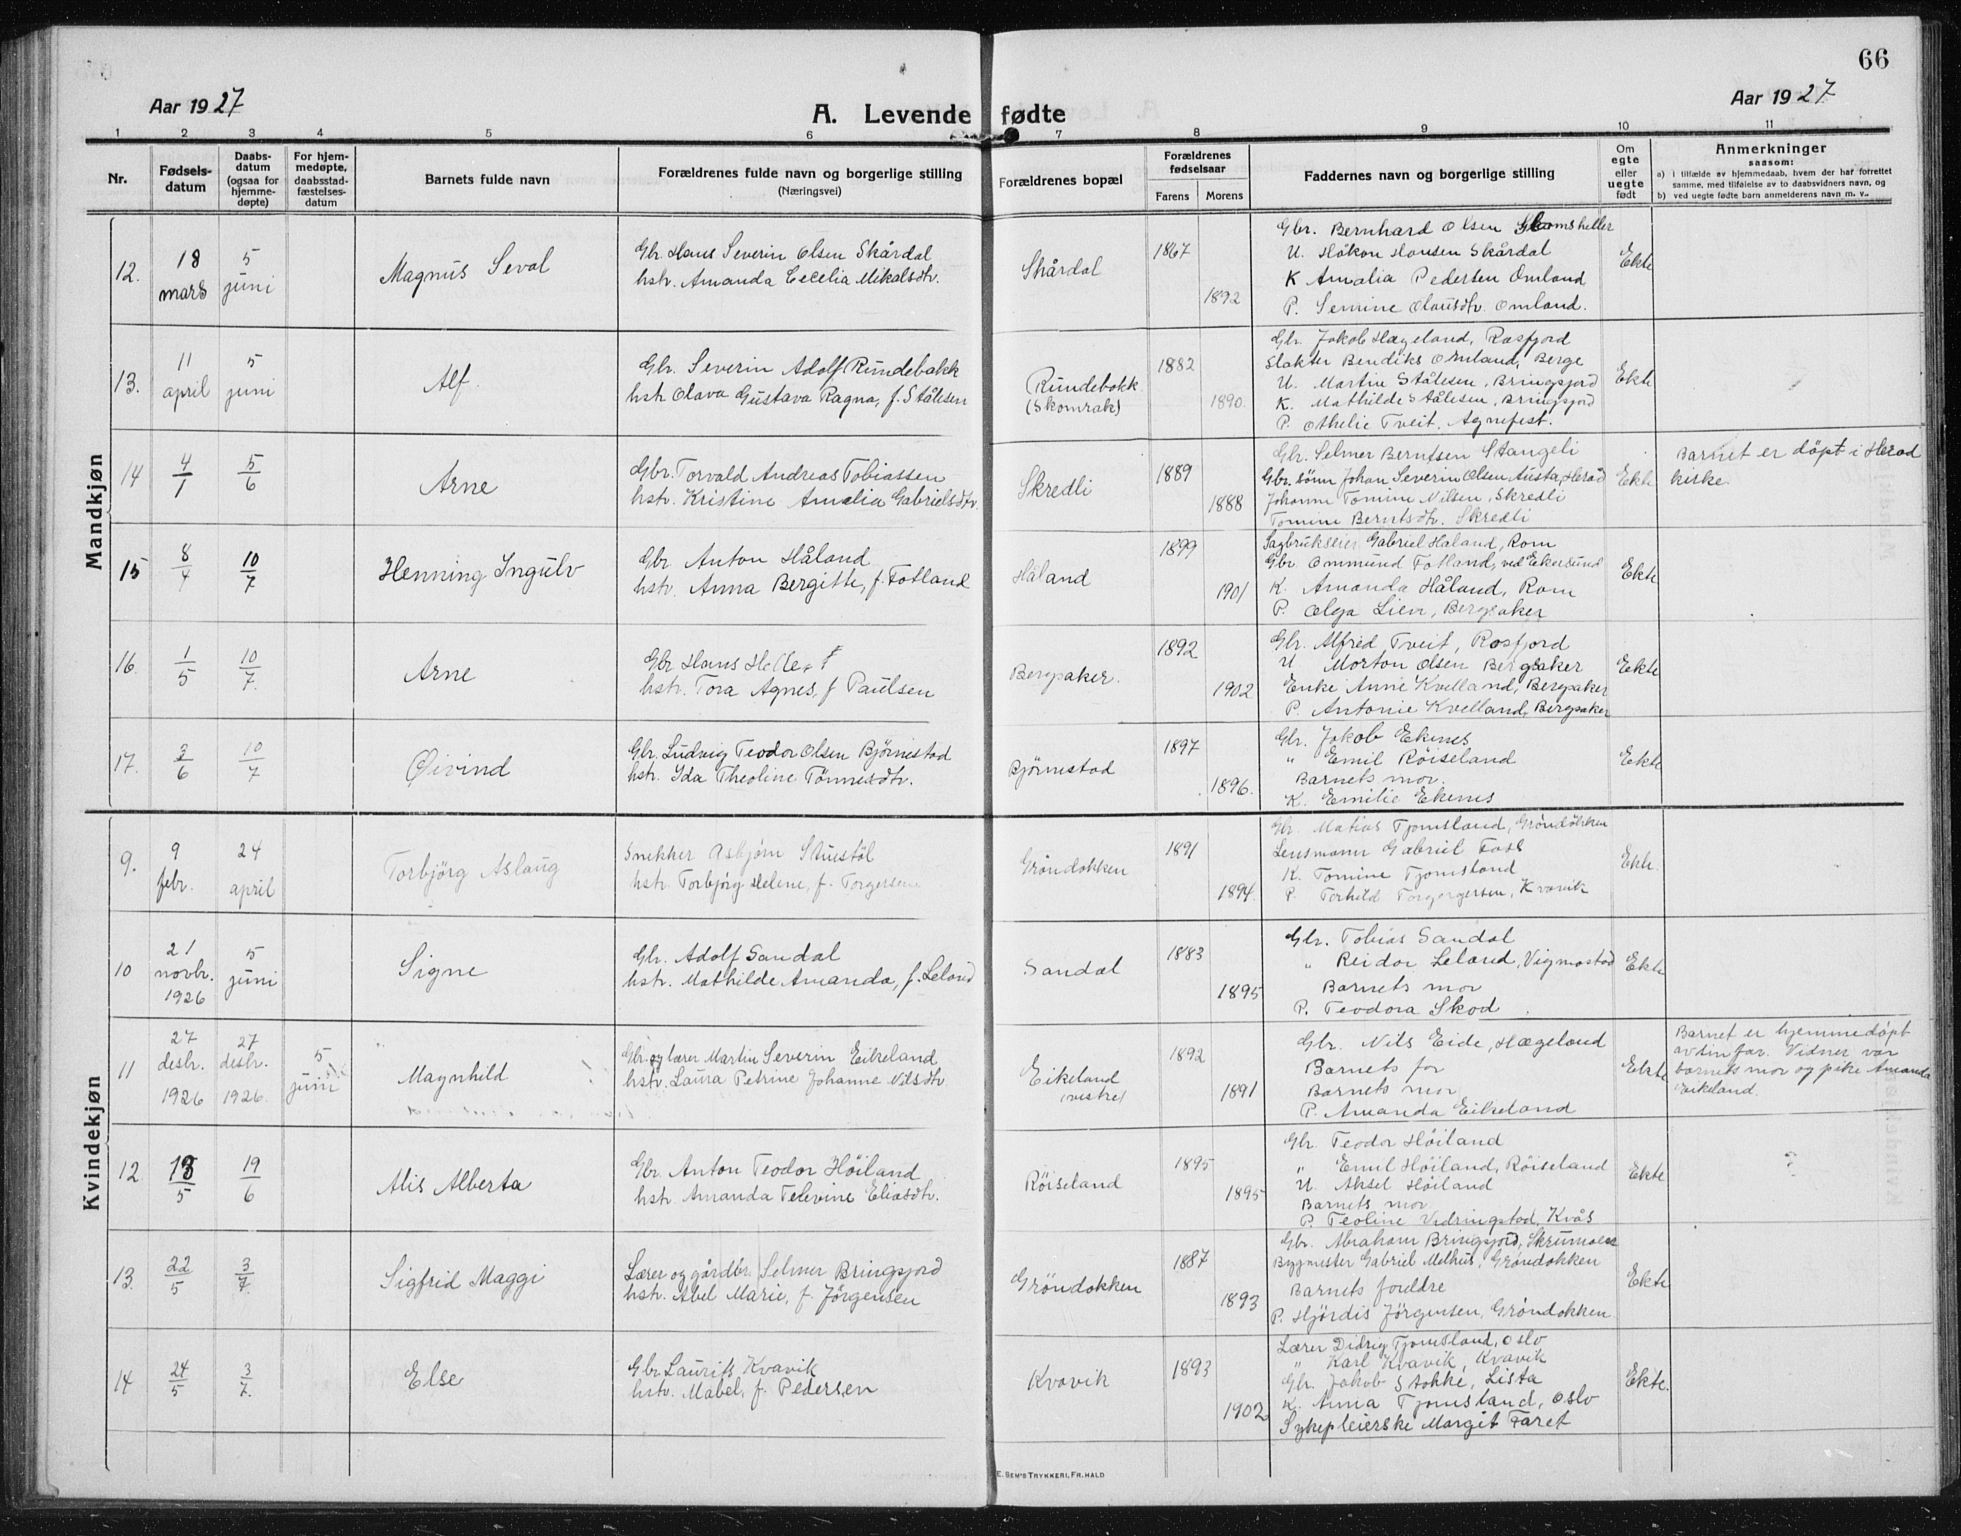 66
Aar 1927
A. Levende fødte
Aar 1927
1 2 3 4 5 6 7 8 9 10 11
Nr.
Fødsels-
datum
Daabs-
datum
(ogsaa for
hjemme-
døpte)
For hjem-
medøpte,
daabsstad-
fæstelses-
datum
Barnets fulde navn
Forældrenes fulde navn og borgerlige stilling
(Næringsvei)
Forældrenes bopæl
Forældrenes
fødselsaar
Farens Morens
Faddernes navn og borgerlige stilling
Om
egte
eller
uegte
født
Anmerkninger
saasom:
a) i tilfælde av hjemmedaab, hvem der har forrettet
samme, med tilføielse av to daabsvidners navn, og
b) ved uegte fødte barn anmelderens navn m. v..
Mandkjøn
12.
18
mars
5
juni
Magnus Seval
Gbr. Hans Severin Olsen Skårdal
hstr. Amanda Cecelia Mikalsdtr.
Skårdal
1867
1892
Gbr. Bernhard Olsen
U. Håkon Hansen Skårdal
K Amalia Pedersen Omland
P. Semine Olausdtr. Omland.
Ekte
13.
11
april
5
juni
Alf.
Gbr. Severin Adolf Rundebakk
hstr Olava Gustava Ragna, f. Stålesen
Rundebakk
(Skomrak)
1882
1890.
Gbr. Jakob Hægeland, Rosfjord
Slakter Bendiks Omland, Berge
U. Martin Stålesen, Bringsjord
K. Mathilde Stålesen, Bringsjord
P. Othelie Tveit, Agnefest.
Ekte
14
4/1
5/6
Arne
Gbr. Torvald Andreas Tobiassen
hstr. Kristine Amalia Gabrielsdtr.
Skredli
1889
1888
Gbr. Selmer Berntsen Stangeli
Gbr. sønn Johan Severin Olsen Austa, Herad
Johanne Tomine Nilsen, Skredli
Tomine Berntsdtr. Skredli
Ekte
Barnet er døpt i Herad
kirke.
15
8/4
10/7
Henning Ingulv
Gbr Anton Håland
hstr. Anna Bergitte, f. Fotland
Håland
1899
1901
Sagbrukseier Gabriel Håland, Rom
Gbr. Ommund Fotland, ved Ekersund
K. Amanda Håland, Rom
P. Olga Lien, Bergsaker
Ekte
16.
1/5
10/7.
Arne
Gbr Hans
hstr. Tora Agnes, f Paulsen
Bergsaker.
1892
1902
Gbr. Alfred Tveit, Rosfjord
U Morton Olsen Bergsaker
Enke Anne Kvelland, Bergsaker
P. Antonie Kvelland, Bergsaker
Ekte
17.
3/6
10/7
Øivind
Gbr. Ludvig Teodor Olsen Bjørnestad
hstr. Ida Theoline Tønnesdtr.
Bjørnestad
1897
1896.
Gbr. Jakob Ekenes
" Emil Røiseland
Barnets mor.
K. Emilie Ekenes
Ekte
Kvindekjøn
9.
9
febr.
24
april
Torbjörg Aslaug
Snekker Asbjørn Stuestöl
hstr. Torbjørg Helene, f. Torgersen
Gröndokken
1891
1894.
Gbr. Matias Tjomsland, Gröndokken
Lensmann Gabriel Foss
K. Tomine Tjomsland
P. Torhild Torgergersen, Kvavik
Ekte.
10
21
novbr.
1926
5
juni
Signe
Gbr. Adolf Sandal
hstr. Mathilde Amanda, f. Leland
Sandal
1883
1895
Gbr. Tobias Sandal
" Reidar Leland, Vigmostad
Barnets mor
P. Teodora Skod.
Ekte
11
27
desbr.
1926
27
desbr.
1926.
5
juni
Magnhild
Gbr. og lærer Martin Severin Eikeland
hstr. Laura Petrine Johanne Nilsdtr
Eikeland
(vestre)
1892
1891
Gbr. Nils Eide, Hægeland
Barnets far
Barnets mor
P. Amanda Eikeland
Ekte
Barnet er hjemmedøpt
av sin far. Vidner var
barnets mor og pike Amanda
Eikeland.
12
13/5
19/6
Alis Alberta
Gbr. Anton Teodor Høiland
hstr. Amanda Televine Eliasdtr.
Røiseland
1895
1895
Gbr. Teodor Høiland
" Emil Høiland, Røiseland
U. Aksel Høiland
Barnets mor
P. Teoline Vedringstad, Kvås
Ekte
13.
22/5
3/7.
Sigfrid Maggi
Lærer og gårdbr. Selmer Bringsjord
hstr. Abel Marie, f. Jörgensen
Gröndokken
1887
1893
Gbr. Abraham Bringsjord, Skrumoen
Bygmester Gabriel Melhus, Gröndokken
Barnets foreldre
P. Hjördis Jörgensen, Gröndokken
Ekte
14
24/5
3/7.
Else
Gbr Laurits Kvavik
hstr. Mabel, f. Pedersen
Kvavik
1893
1902
Lærer Didrig Tjomsland, Oslo
" Karl Kvavik, Kvavik
Gbr. Jakob Stokke, Lista
K. Anna Tjomsland, Oslo
Sykepleierske Margit Faret
Ekte.
E. SEM'S TRYKKERI, FR. HALD